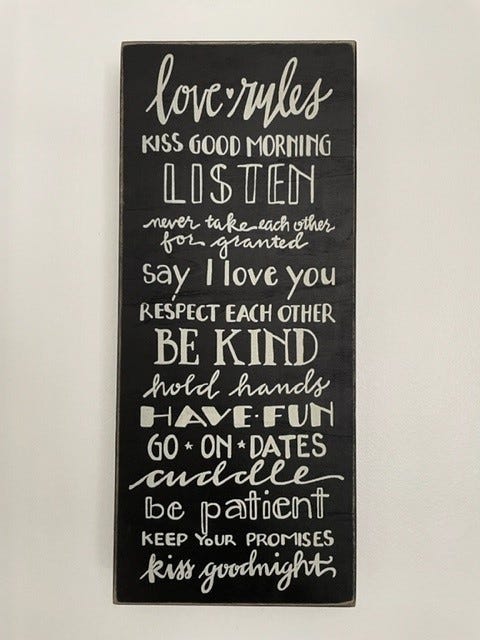 love ♥ rules
KISS GOOD MORNING
LISTEN
never take each other
for granted
say I love you
RESPECT EACH OTHER
BE KIND
hold hands
HAVE·FUN
GO ★ ON ★ DATES
cuddle
be patient
KEEP YOUR PROMISES
kiss goodnight